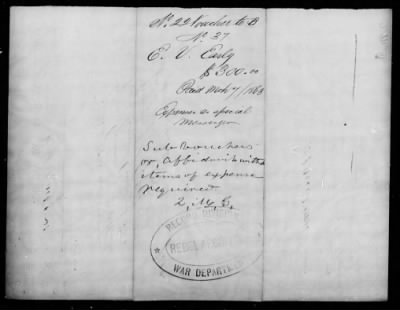 No. 22 Voucher to B
No. 37
E. V. Early
$300.00
Paid Mch 7/1863
Expenses as special
Messenger
Sub vouchers
or, affidavit with
items of expense
required
2, M, S,
RECORD
REBEL
WAR DEPARTMENT